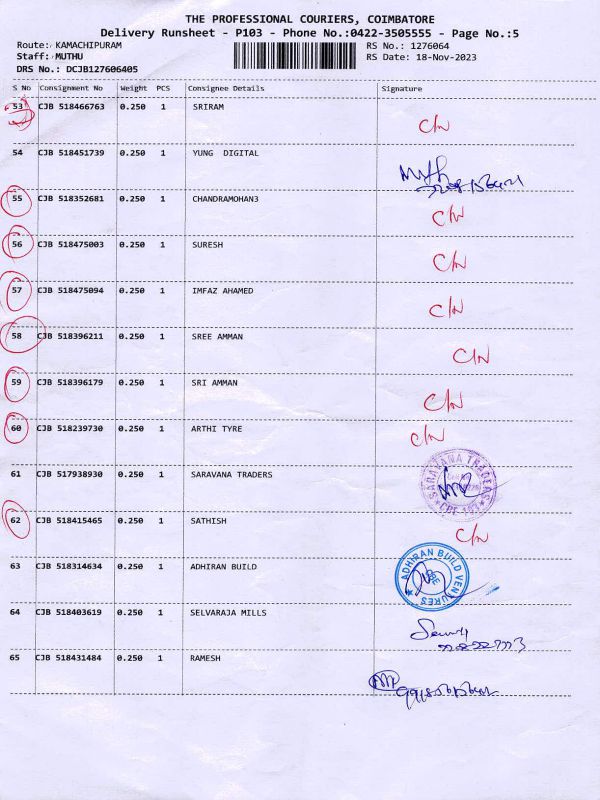 THE PROFESSIONAL COURIERS, COIMBATORE
Delivery Runsheet - P103 - Phone No.:0422-3505555 - Page No.:5
Route: KAMACHIPURAM RS No.: 1276064
Staff: MUTHU RS Date: 18-Nov-2023
DRS No.: DCJB127606405
S No Consignment No Weight PCS Consignee Details Signature
53 CJB 518466763 0.250 1 SRIRAM C/N
54 CJB 518451739 0.250 1 YUNG DIGITAL
55 CJB 518352681 0.250 1 CHANDRAMOHAN3 C/N
56 CJB 518475003 0.250 1 SURESH C/N
57 CJB 518475094 0.250 1 IMFAZ AHAMED C/N
58 CJB 518396211 0.250 1 SREE AMMAN C/N
59 CJB 518396179 0.250 1 SRI AMMAN C/N
60 CJB 518239730 0.250 1 ARTHI TYRE C/N
61 CJB 517938930 0.250 1 SARAVANA TRADERS SARAVANA TRADERS
62 CJB 518415465 0.250 1 SATHISH C/N
63 CJB 518314634 0.250 1 ADHIRAN BUILD ADHIRAN BUILD VENTURES
64 CJB 518403619 0.250 1 SELVARAJA MILLS
65 CJB 518431484 0.250 1 RAMESH